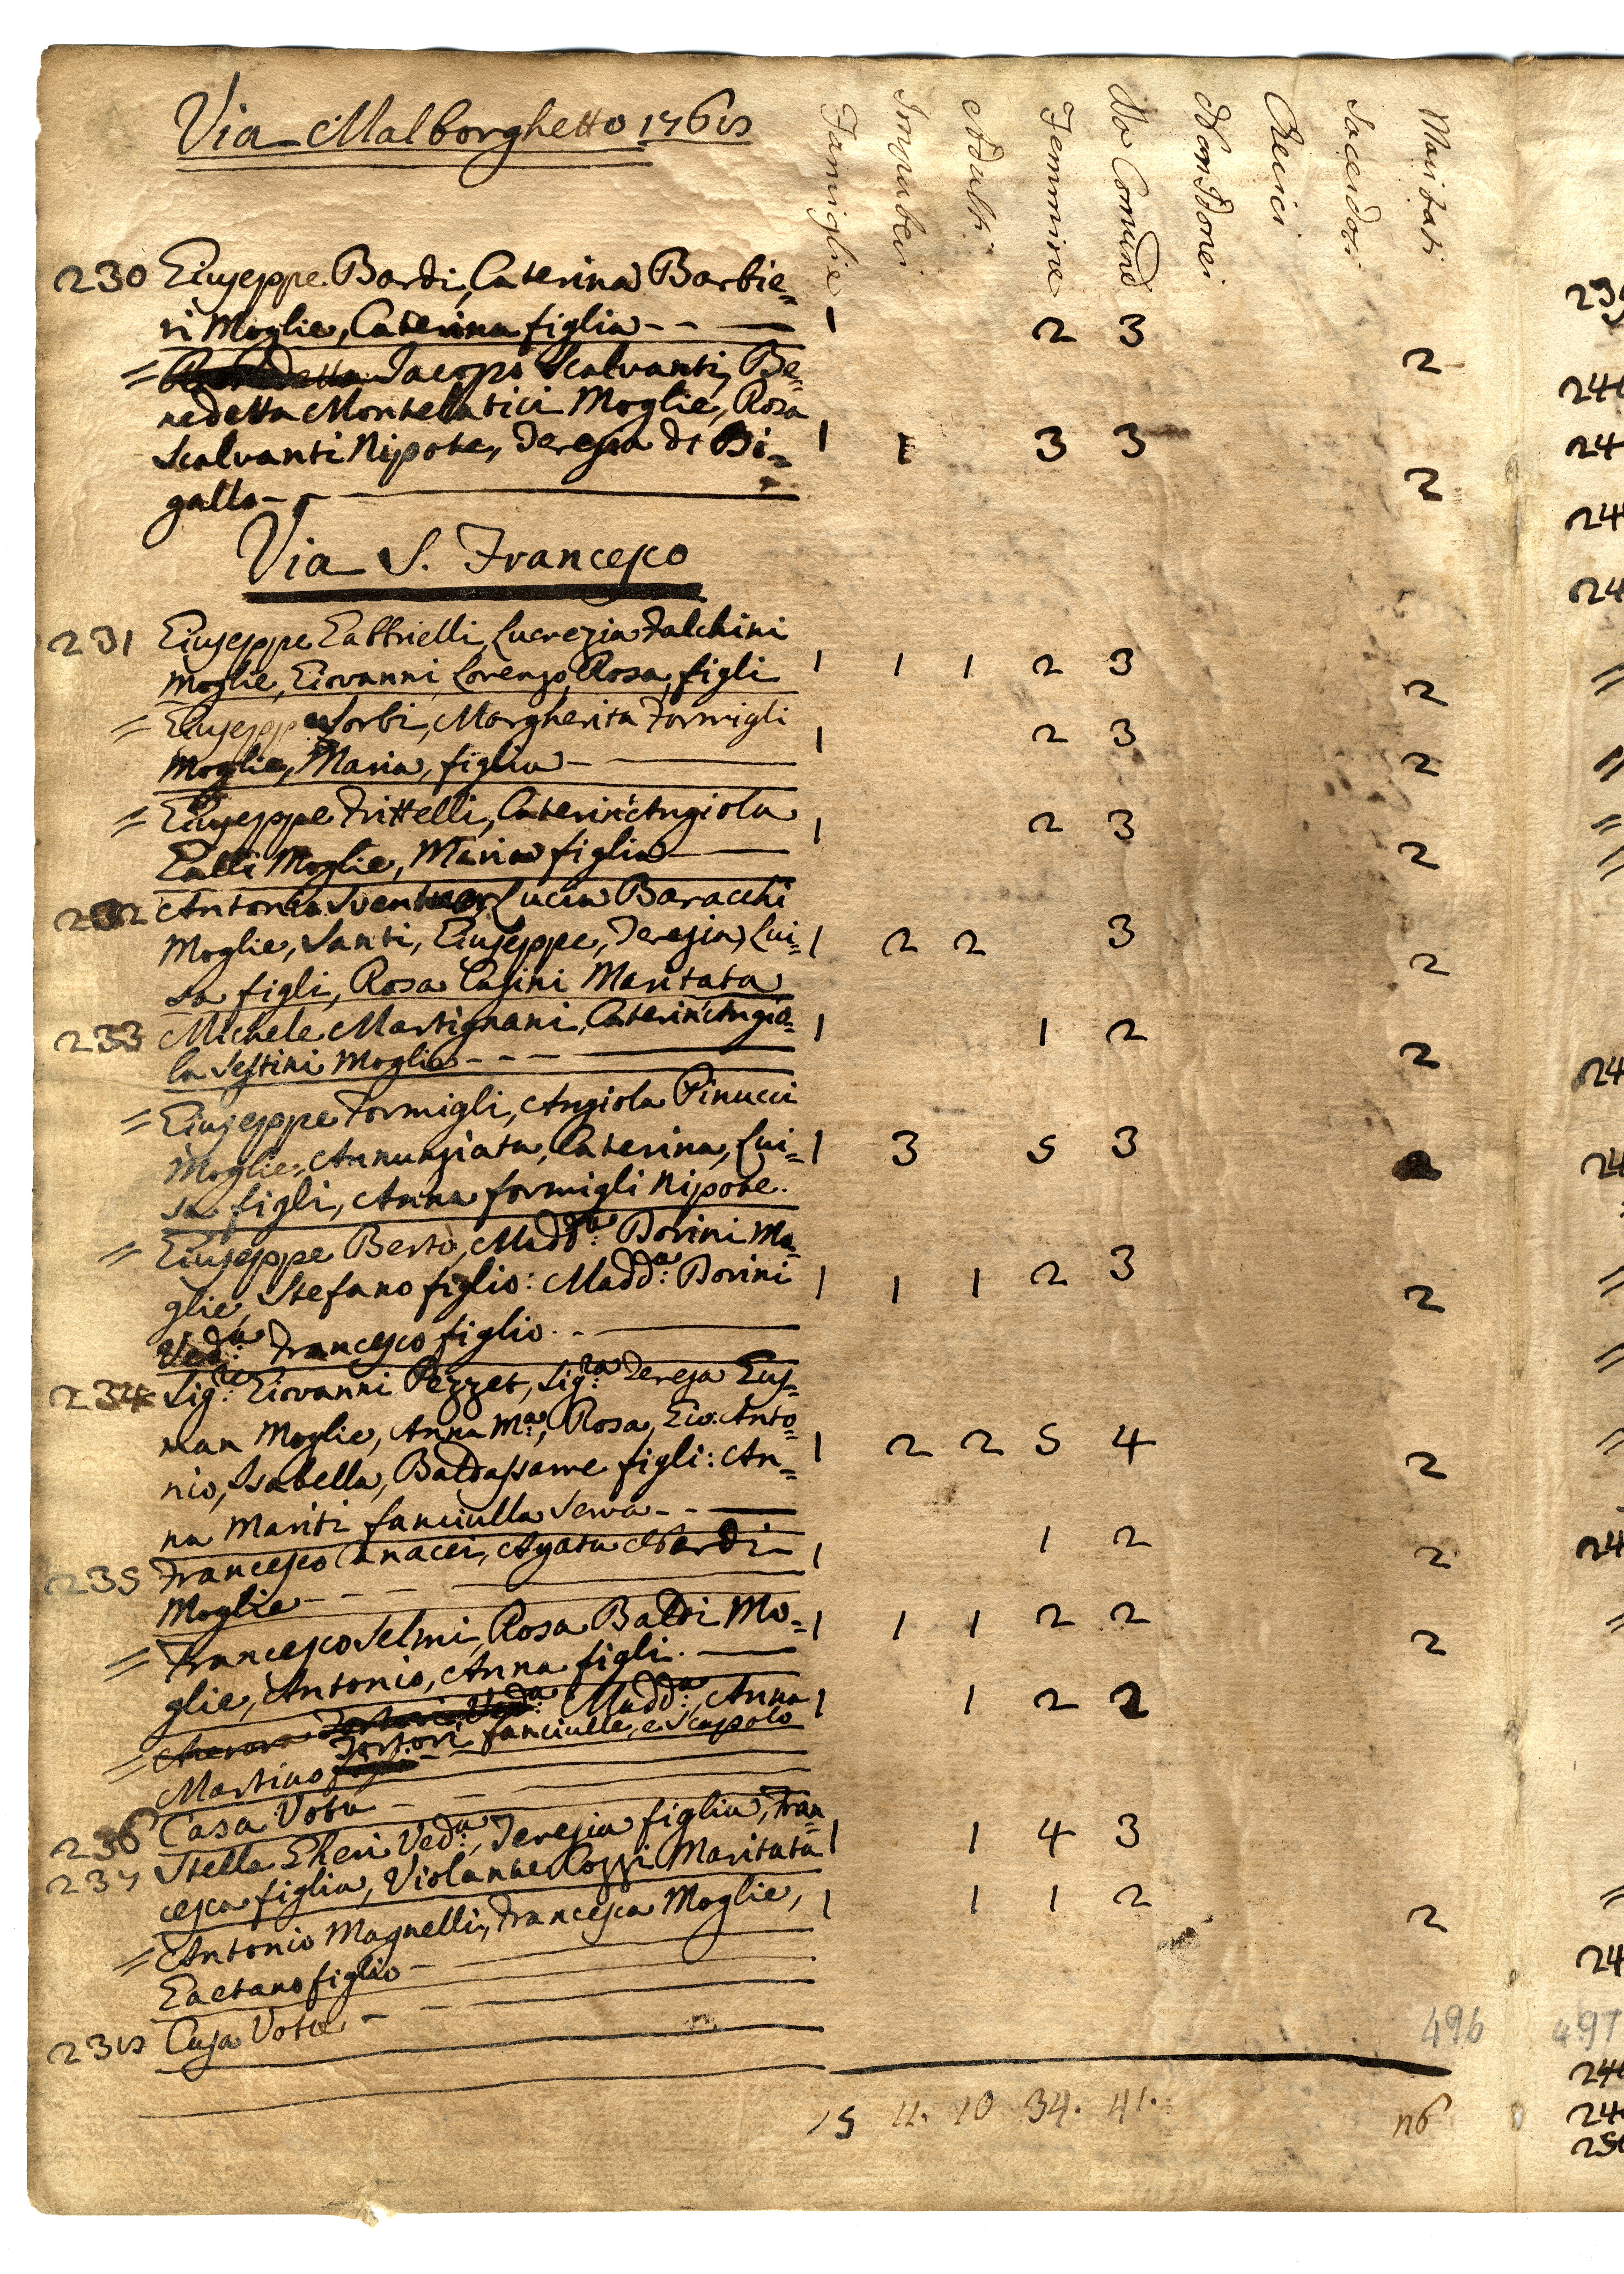 Via Malborghetto 1768
Famiglie Impuberi Adulti Femmine Da Comune Non Idonei Cherici Sacerdoti Maritati
230 Giuseppe Bardi, Caterina Barbie=
ri Moglie, Caterina figlia - - — 1 2 3 2
= Jacopo Scalvanti, Be=
nedetta Montelatici Moglie, Rosa
Scalvanti Nipote, Teresa di Bi= 1 1 3 3 2
gallo - —
Via S. Francesco
231 Giuseppe Gabbrielli, Lucrezia Falchini
Moglie, Giovanni, Lorenzo, Rosa, figli 1 1 1 2 3 2
= Giuseppe Sorbi, Margherita Formigli
Moglie, Maria, figlia - — 1 2 3 2
= Giuseppe Frittelli, Caterin'Angiola
Galli Moglie, Maria figlia — 1 2 3 2
232 Antonio Lucia Baracchi
Moglie, Santi, Giuseppe, Teresia, Lui= 1 2 2 3 2
sa figli, Rosa Casini Maritata
233 Michele Martignani, Caterin'Angio= 1 1 2 2
la Sestini Moglie - - - —
= Giuseppe Formigli, Angiola Pinucci
Moglie, Annunziata, Caterina, Lui= 1 3 5 3
sa figli, Anna formigli Nipote.
= Giuseppe Berto, Madd.a Borini Mo=
glie Stefano figlio: Madd.a Borini 1 1 1 2 3 2
Ved.a Francesco figlio. - —
234 Sig.re Giovanni Pezzet, Sig.ra Teresa Gus=
man Moglie, Anna M.a, Rosa, Gio: Anto= 1 2 2 5 4 2
nio, Isabella, Baldassarre figli: An=
na Mariti fanciulla Serva - - —
235 Francesco Canacci, Agata Nardi 1 1 2 2
Moglie - - - —
= Francesco Selmi, Rosa Baldi Mo= 1 1 1 2 2 2
glie, Antonio, Anna figli. —
= Tortori Ved.a Madd.a, Anna 1 1 2 2
Martino Tortori fanciulle, e Scapolo
236 Casa Vota - - —
237 Stella Gheri Ved.a, Teresia figlia, Fran= 1 1 4 3
cesca figlia, Violante Cozzi Maritata
= Antonio Magnelli, Francesca Moglie, 1 1 1 2 2
Gaetano figlio - —
238 Casa Vota - —
496 497
15 11. 10 34. 41. 26